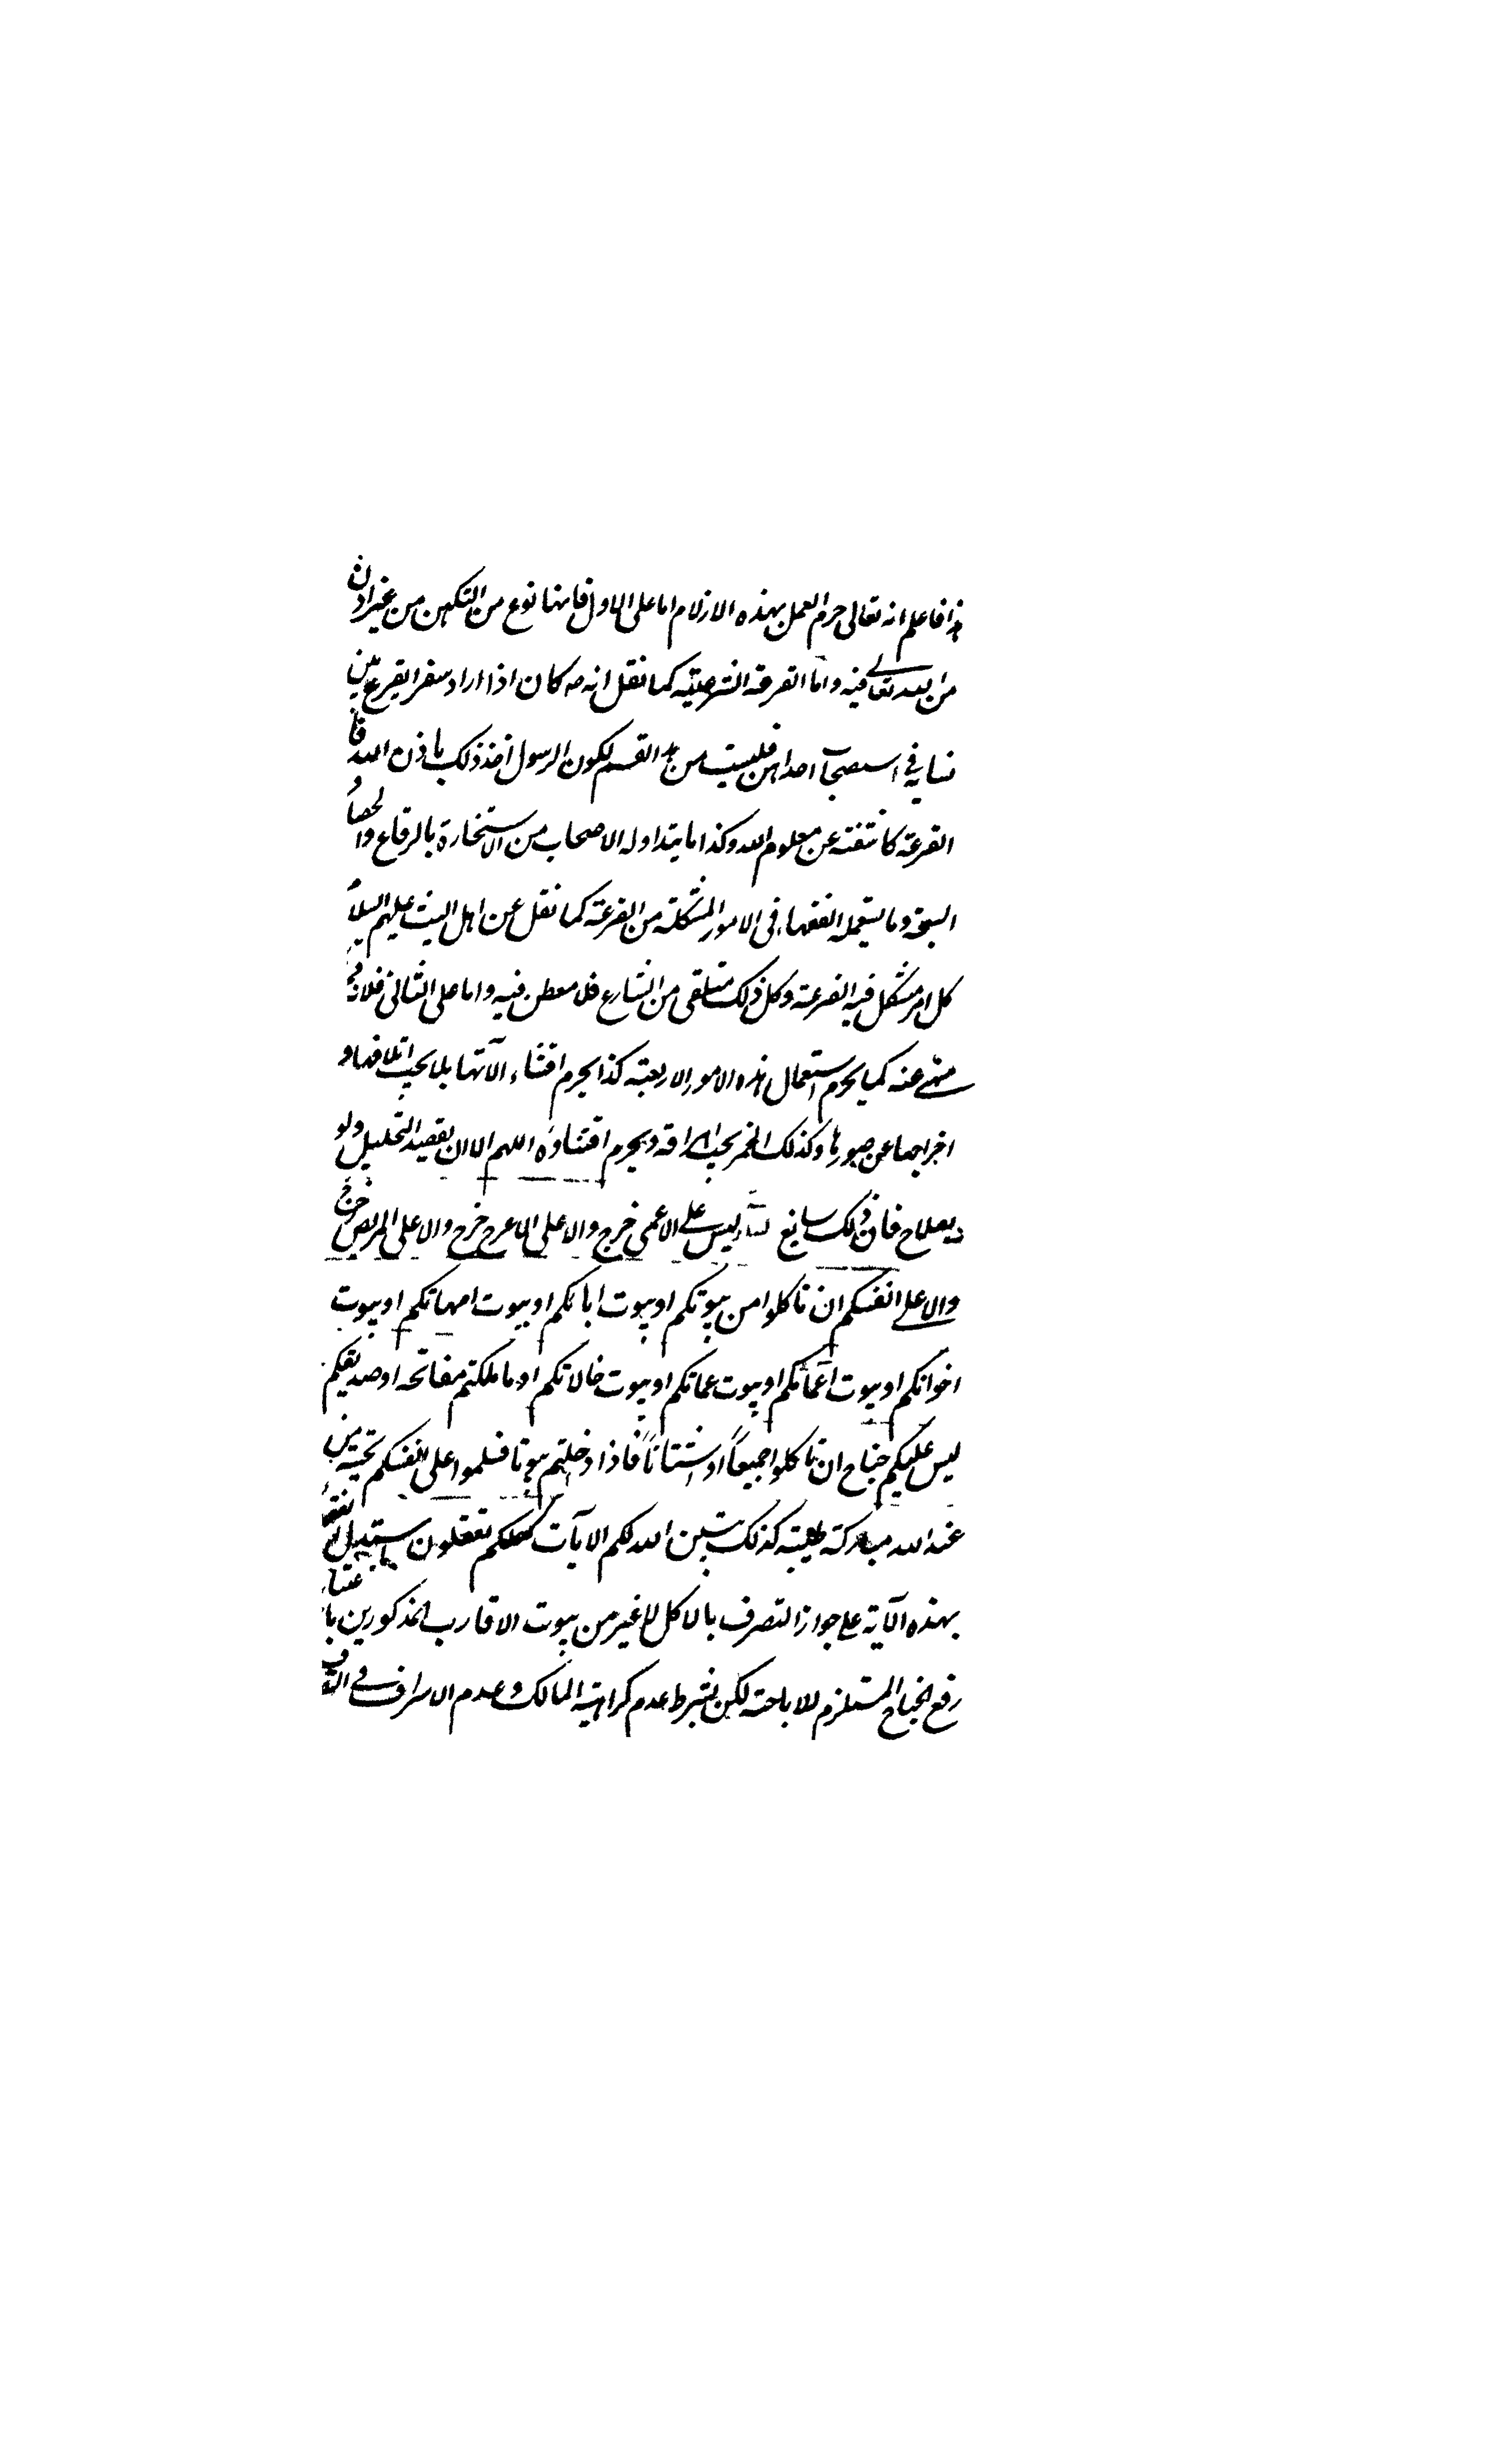 هذا فاعلم انه تعالى حرم العمل بهذه الازلام اما على الاول فانها نوع من التكهن من غير اذن
من الله تعالى فيه واما القرعة الشرعية كما نقل انه ص كان اذا اراد سفرا يقرع بين
نسايه في استصحاب احداهن فليست من هذا القسم لكون الرسول اخذ ذلك باذن الله فا
القرعة كاشفة عن معلوم الله وكذا ما يتداوله الاصحاب من الاستخارة بالرقاع والحصا
السبحة وما يستعمله الفقهاء فى الامور المشكلة من القرعة كما نقل عن اهل البيت عليهم السلام
كل امر مشكل فيه القرعة وكل ذلك متلقى من الشارع فلا مطعن فيه واما على الثانى فلانه
منهى عنه كما يحرم استعمال هذه الامور الاربعة كذا يحرم اقتناء الآتها بل يجب اتلافها و
اخراجها عن صورها وكذلك الخمر يجب اراقه ويحرم اقتناؤه اللهم الا ان يقصد التخليل ولو
بعلاج فان ذلك سايغ ليس على الاعمى حرج ولا على الاعرج حرج ولا على المريض حرج
ولا على انفسكم ان تاكلوا من بيوتكم او بيوت ابائكم او بيوت امهاتكم او بيوت
اخوانكم او بيوت اعمامكم او بيوت عماتكم او بيوت خالاتكم او ما ملكتم مفاتحه او صديقكم
ليس عليكم جناح ان تاكلوا جميعاً او اشتاتاً فاذا دخلتم بيوتا فسلموا على انفسكم تحية من
عند الله مباركة طيبة كذلك يبين الله لكم الآيات لعلكم تعقلون استدل الفقها
بهذه الآية على جواز التصرف بالاكل لا غير من بيوت الاقارب المذكورين باعتبار
رفع الجناح المستلزم للاباحة لكن بشرط عدم كراهية المالك وعدم الاسراف في